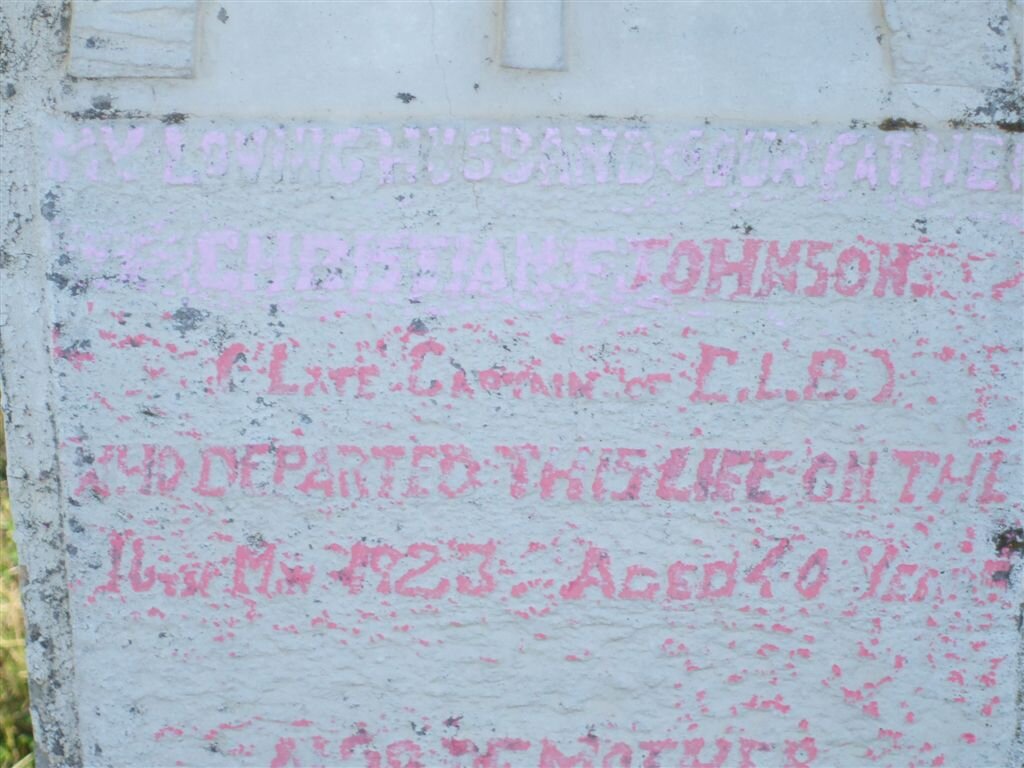 MY LOVING HUSBAND & OUR FATHER
CHRISTIAN F JOHNSON
(LATE CAPTAIN OF C.L.B.)
WHO DEPARTED THIS LIFE ON THE
MAY 1923 AGED 40 YEARS
MOTHER